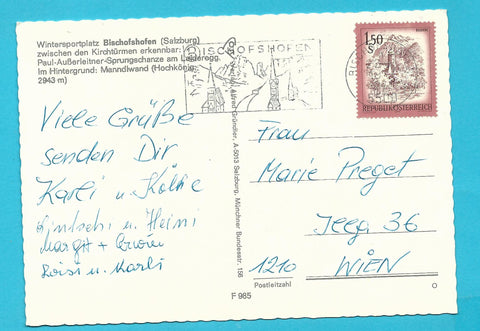 Wintersportplatz Bischofshofen (Salzburg)
zwischen den Kirchtürmen erkennbar:
Paul-Außerleitner-Sprungschanze am Laideregg.
Im Hintergrund: Manndlwand (Hochkönig,
2943 m)
BISCHOFSHOFEN
1.50
S
REPUBLIK ÖSTERREICH
Viele Grüße
senden Dir
Karli u.
u. Heini
Margit +
Loisi u. Karli
Alfred Gründler, A-5013 Salzburg, Münchner Bundesstr. 156
Frau
Marie Preget
36
1210 WIEN
Postleitzahl
F 965